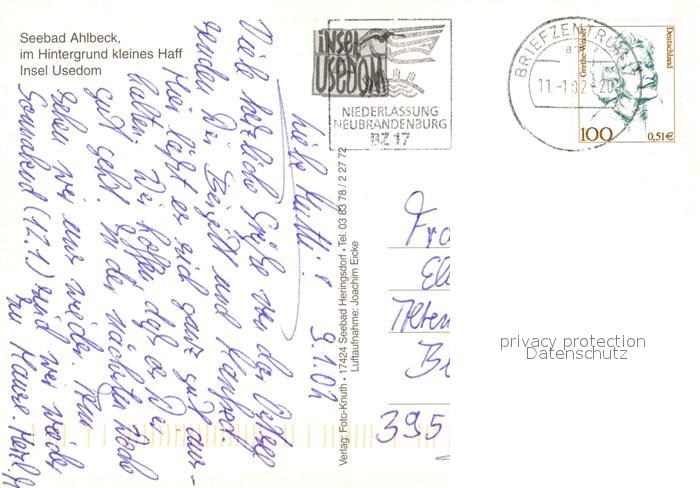 Seebad Ahlbeck,
im Hintergrund kleines Haff
Insel Usedom
iNSEL
USEDOM
NIEDERLASSUNG
NEUBRANDENBURG
BZ 17
BRIEFZENTRUM 17
11.-1.02-20
Grethe Weiser
Deutschland
100
0,51€
Verlag: Foto-Knuth • 17424 Seebad Heringsdorf • Tel. 03 83 78 / 2 27 72
Luftaufnahme: Joachim Eicke
9.1.02
Liebe Mutti!
Viele herzliche Grüße von der Ostsee
senden Dir Birgitt und
Hier läßt es sich ganz gut aus-
halten. Wir hoffen, daß es Dir
gut geht. In der nächsten Woche
sehen wir uns wieder. Am
Sonnabend (12.1.) sind wir wieder
zu Hause. Herzl.
Fra
El
Alten
B
395
privacy protection
Datenschutz